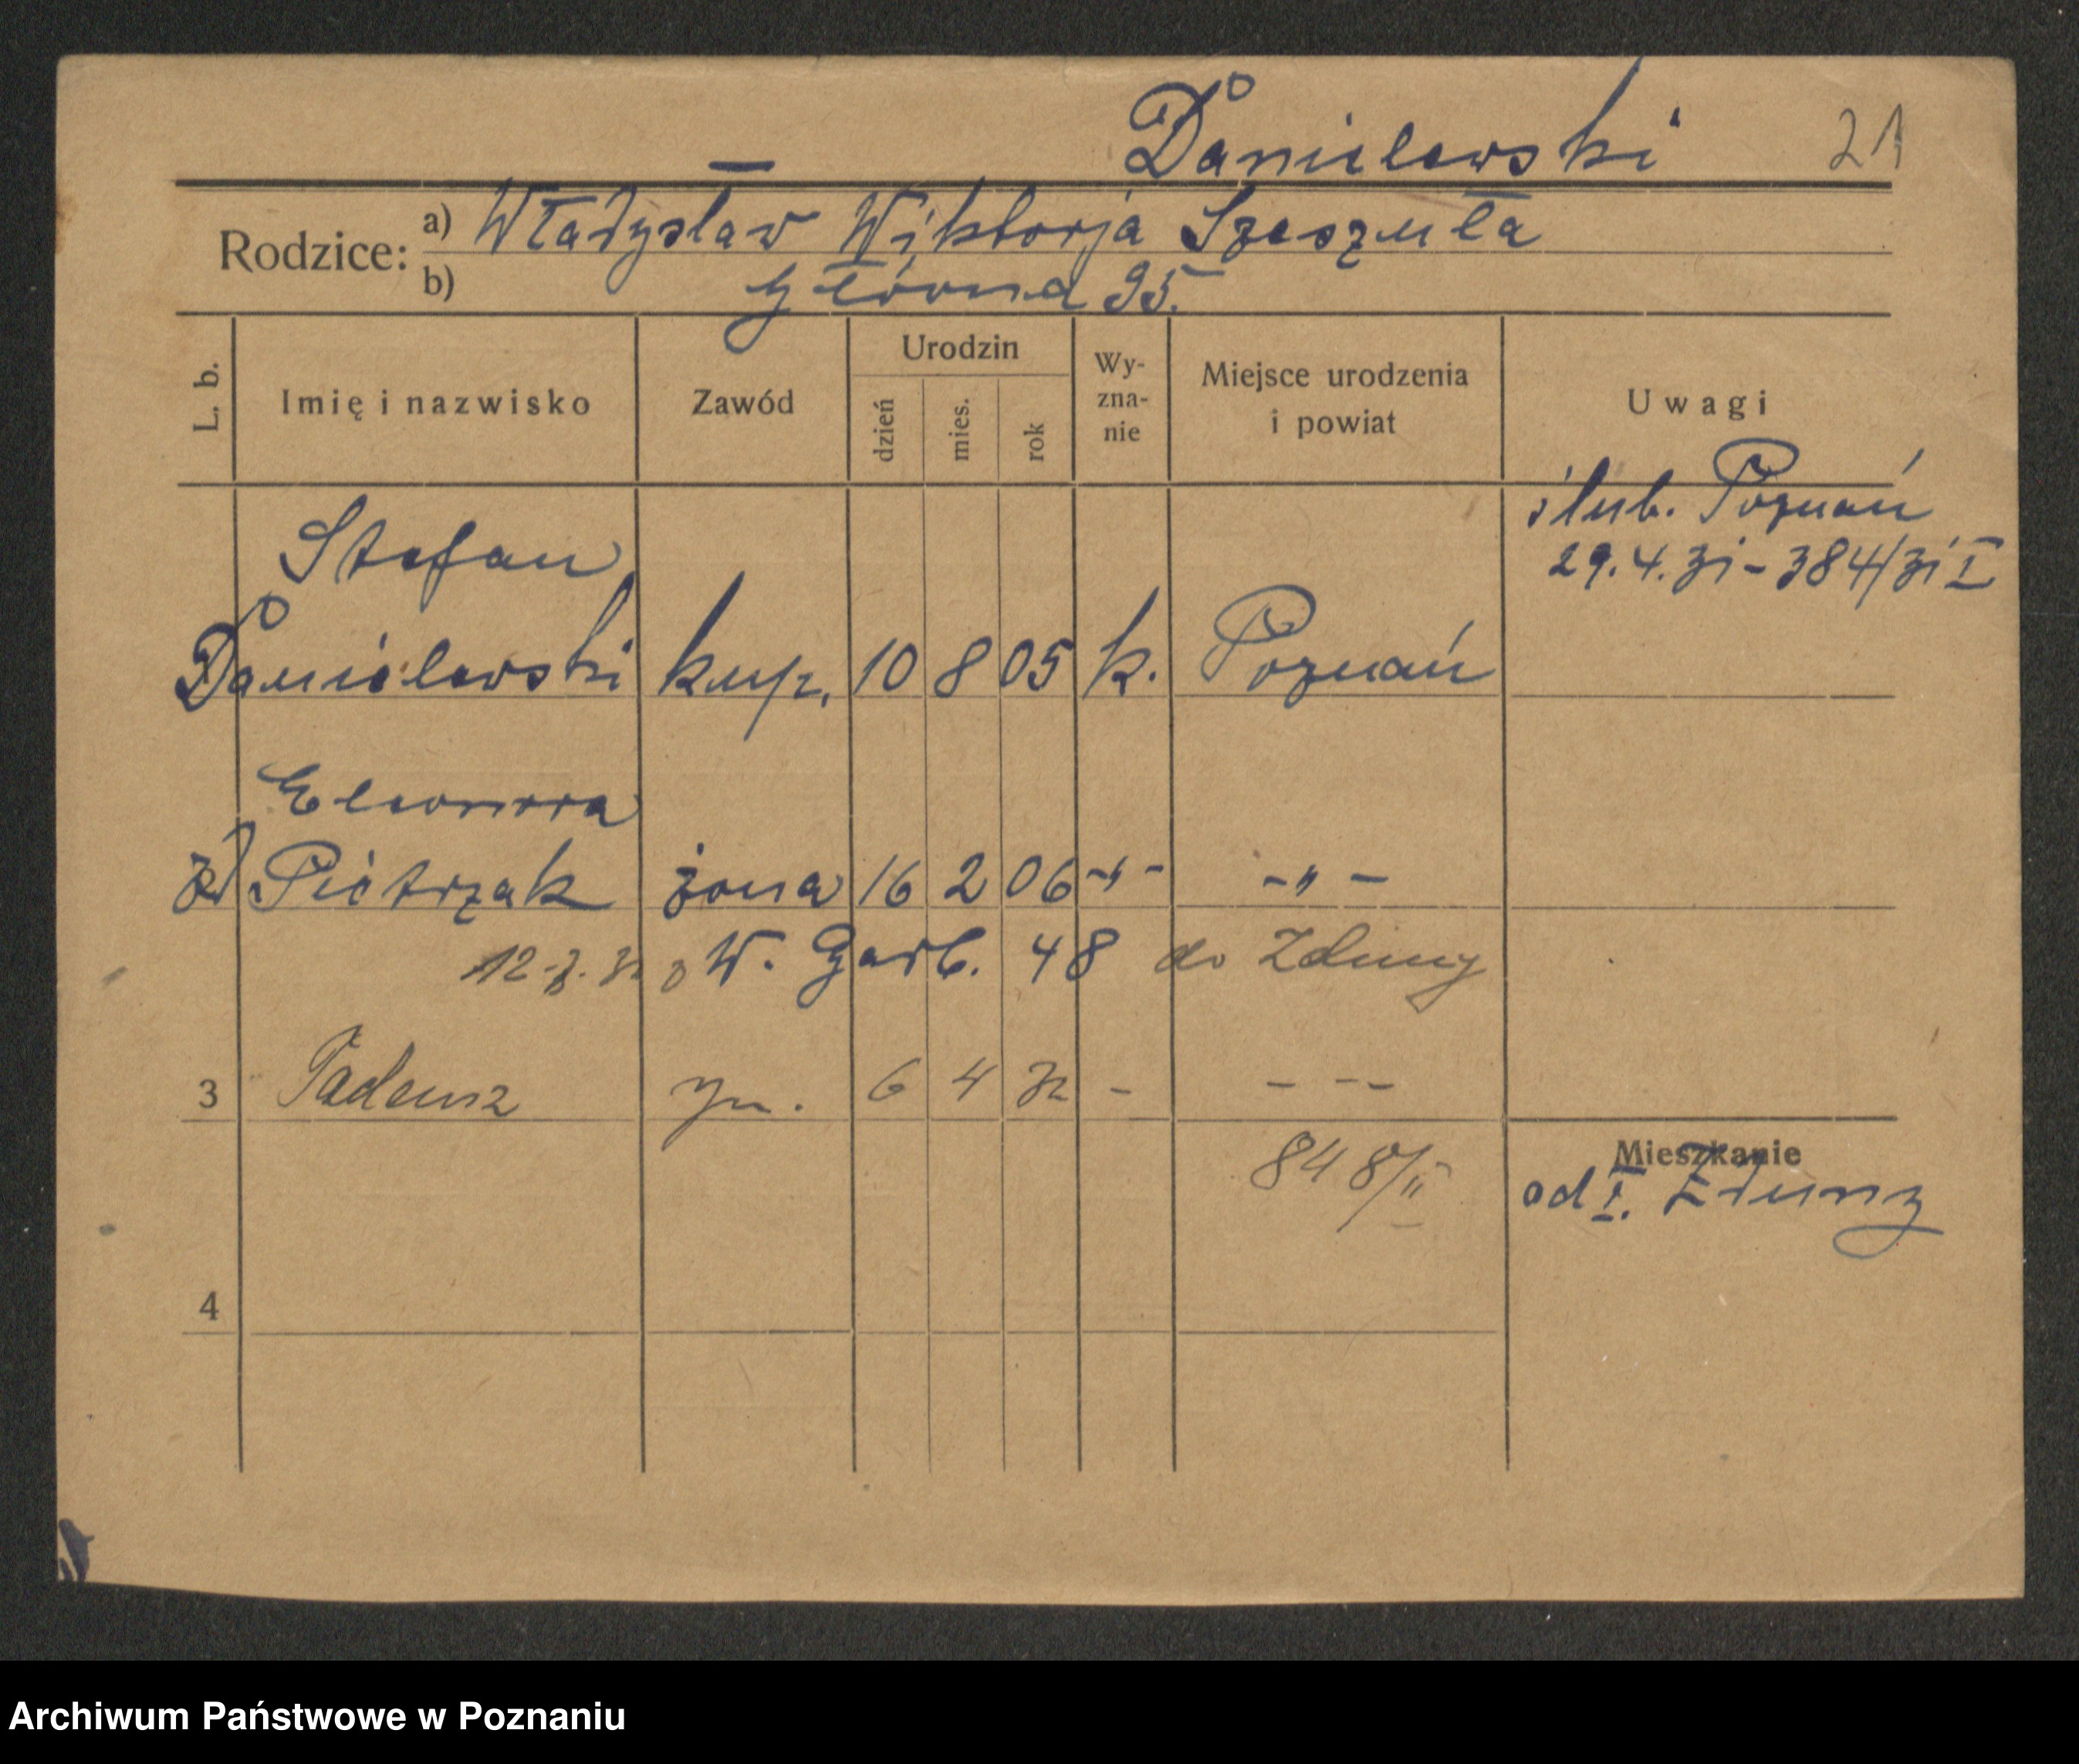 Danielewski 21
Rodzice: a) Władysław Wiktorja Szeszuła
b) Główna 95.
L. b. Imię i nazwisko Zawód Urodzin dzień mies. rok Wy-zna-nie Miejsce urodzenia i powiat Uwagi
ślub. Poznań
29.4.31 - 384/31 I
Stefan
Danielewski kup. 10 8 05 k. Poznań
Eleonora
2) Pietrzak żona 16 2 06 -"- -"-
W. Garb. 48 do Zduny
3 Tadeusz syn. 6 4 32 - - --
848/II
Mieszkanie
od I. Zduny
4
Archiwum Państwowe w Poznaniu